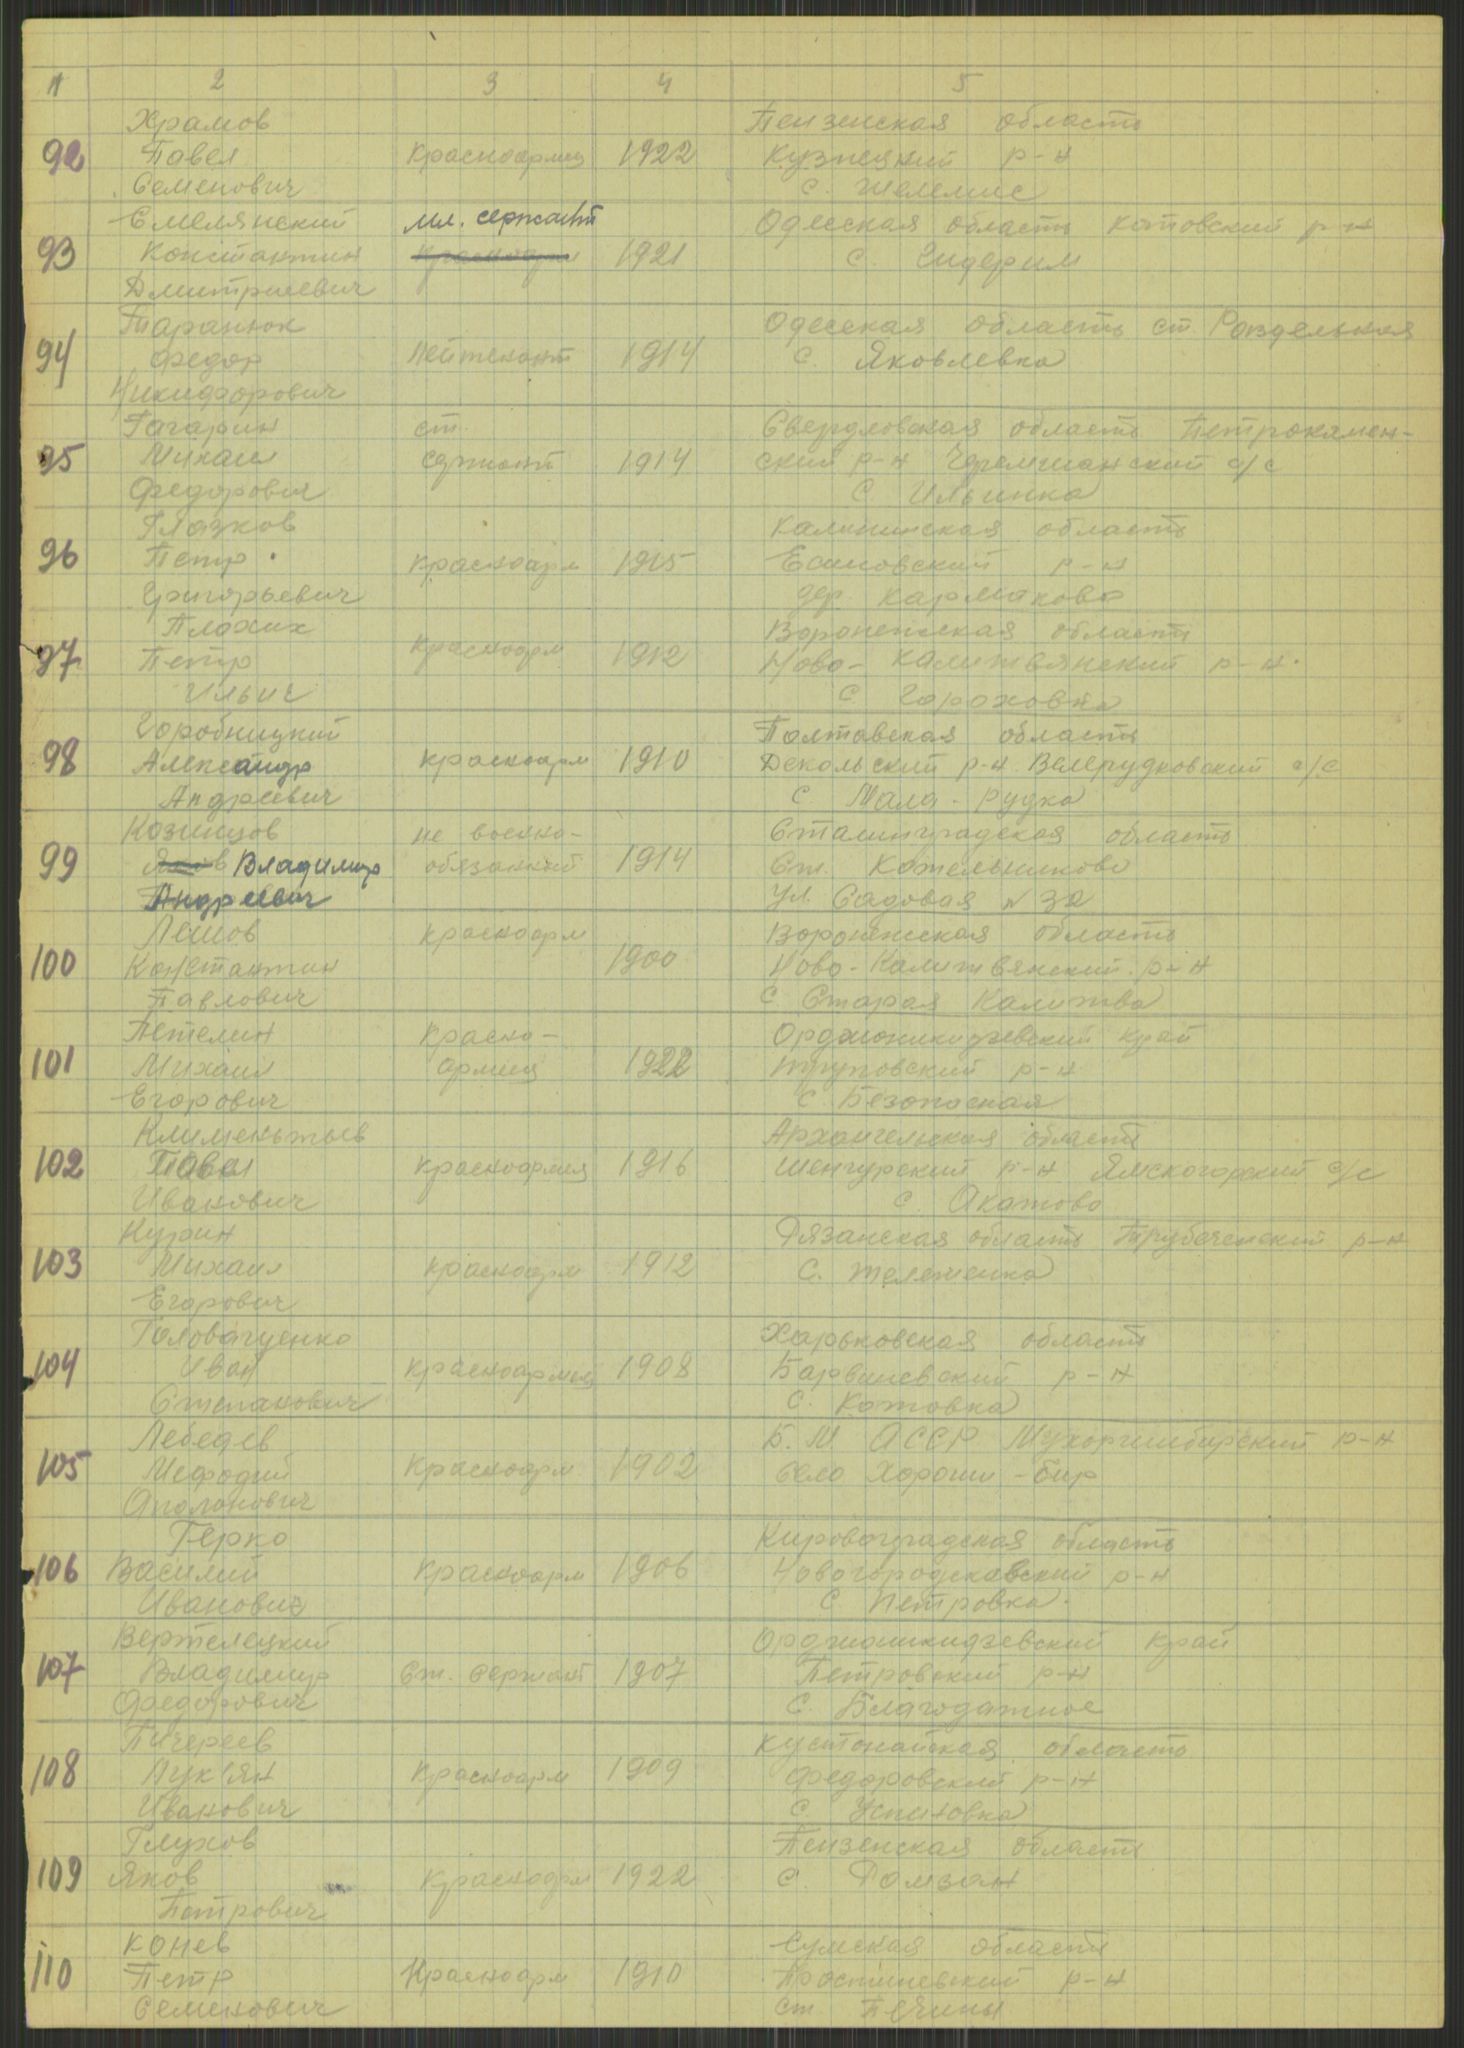 1 2 3 4 5
Храмов Пензенская область
92 Павел Красноармец 1922 Кузнецкий р-н
Семенович с. Шелемис
Смелянский мл. сержант Одесская область Котовский р-н
93 Константин Красноарм 1921 с. Гидерим
Дмитриевич
Таранюк Одесская область ст. Раздельная
94 Федор Лейтенант 1914 с. Яковлевка
Никифорович
Гагарин ст. Свердловская область Петрокамен-
95 Михаил сержант 1914 ский р-н Черемшанский с/с
Федорович с Ильинка
Глазков Калининская область
96 Петр Красноарм 1915 Есиновский р-н
Григорьевич дер. Кармаково
Плохих Воронежская область
97 Петр Красноарм 1912 Ново-Калитвянский р-н.
Ильич с. Гороховка
Горобницкий Полтавская область
98 Александр Красноарм 1910 Декольский р-н Велерудковский с/с
Андреевич с. Мала-Рудка
Козинцов не военно- Сталинградская область
99 Яков Владимир обязанный 1914 Ст. Котельниково
Андреевич ул. Садовая № 32
Лешов Красноарм Воронежская область
100 Константин 1900 Ново-Калитвянский р-н
Павлович с Старая Калитва
Петелин Красно- Орджоникидзевский край
101 Михаил армец 1922 Труновский р-н
Егорович с. Безопасная
Клименьтьев Архангельская область
102 Павел Красноармец 1916 Шенгурский р-н Ямскогорский с/с
Иванович с. Акатово
Курин Рязанская область Трубеченский р-н
103 Михаил Красноарм 1912 с. Телешенка
Егорович
Головащенко Харьковская область
104 Иван Красноармец 1908 Барвинсвский р-н
Степанович с. Котовка
Лебедев Б. М. АССР Мухоршибирский р-н
105 Мефодий Красноарм 1902 село Хорони-бир
Аполонович
Герко Кировоградская область
106 Василий Красноарм 1906 Новогородкавский р-н
Иванович с Петровка.
Вертелецкий Орджоникидзевский край
107 Владимир Ст. сержант 1907 Петровский р-н
Федорович с. Благодатное
Пичереев Кустонайская область
108 Лукьян Красноарм 1909 Федоровский р-н
Иванович с. Успеновка
Глухов Пензенская область
109 Яков Красноарм 1922 с. Рамзан
Петрович
Конев Сумская область
110 Петр Красноарм 1910 Простиневский р-н
Семенович ст. Печины